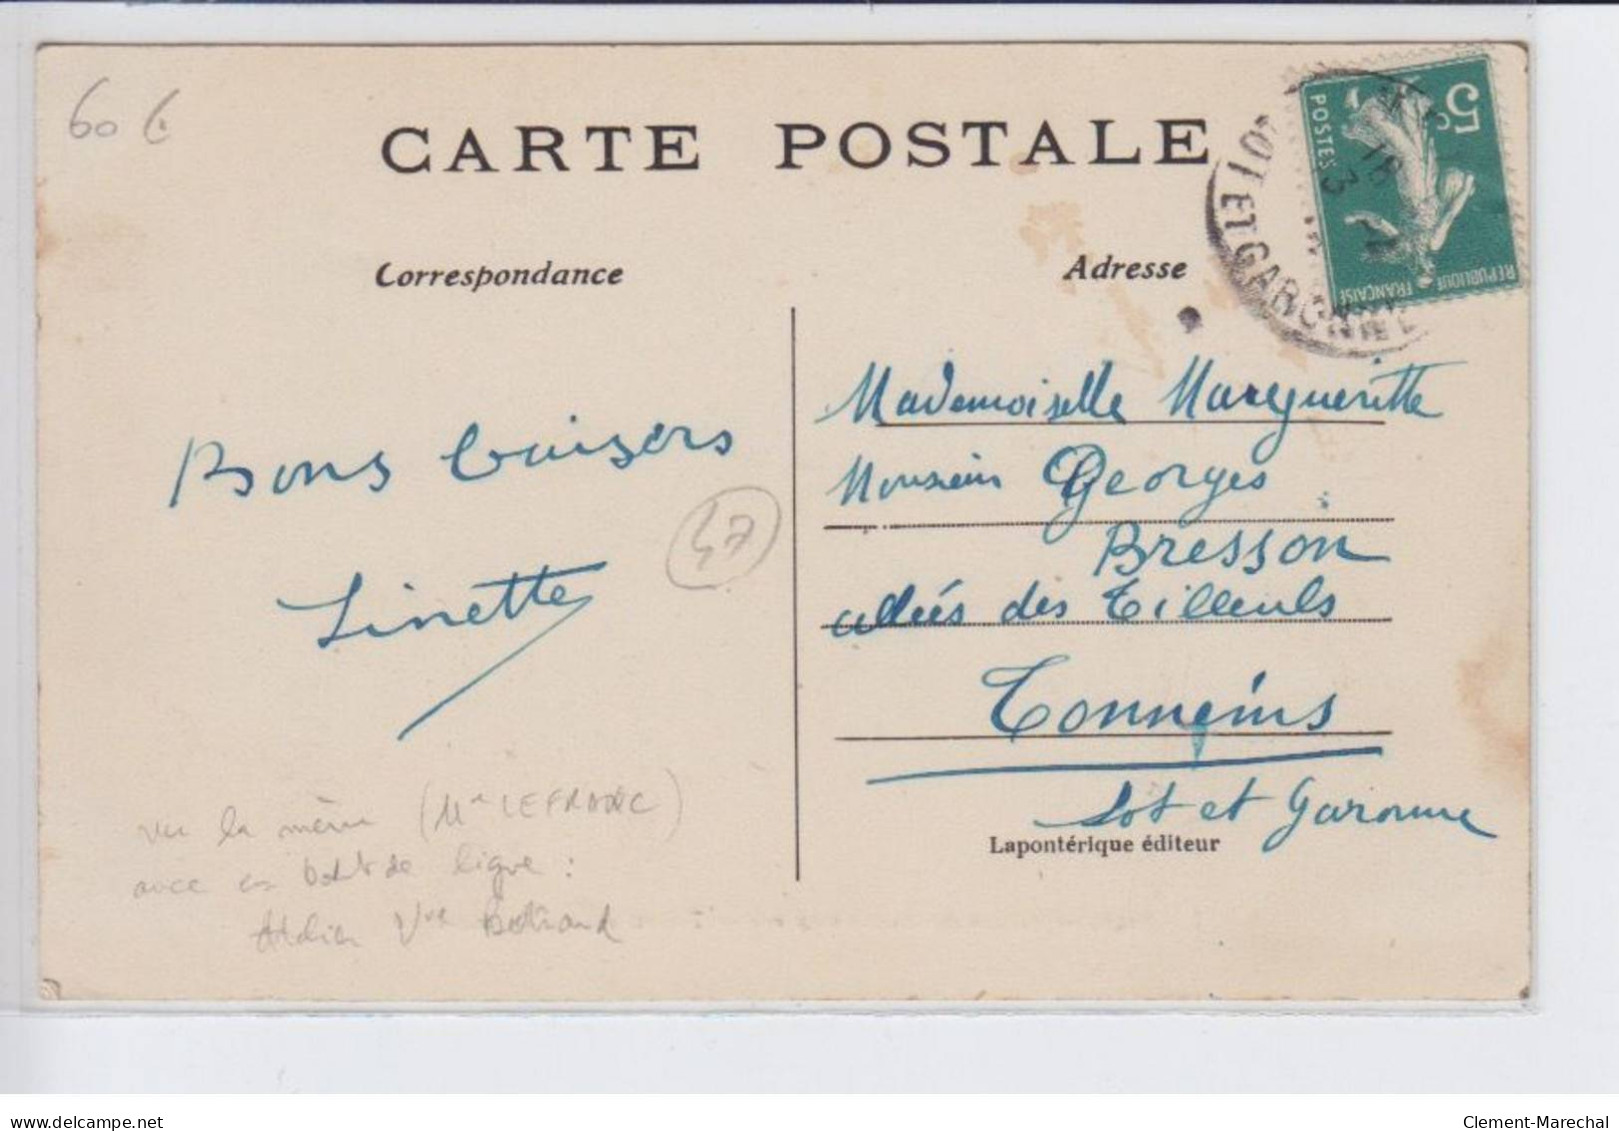 60 €
CARTE POSTALE
Correspondance
Adresse
5c
POSTES
REPUBLIQUE
FRANÇAISE
LOT ET GARONNE
18
3
Bons baisers
Linette
47
Mademoiselle Marguerite
Monsieur Georges
Bresson
allées des Tilleuls
Tonneins
Lot et Garonne
Lapontérique éditeur
vu la même (Mn LEFRANC)
avec en bout de ligne :
Atelier Vve Bertrand
delcampe.net
Clement-Marechal